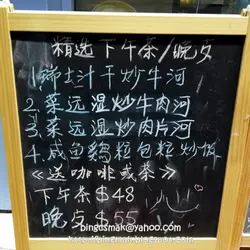 精选下午茶/晚夕
1.锦士汁干炒牛河
2.菜远湿炒牛肉河
3.菜远湿炒肉片河
4.咸鱼鷄粒包粒炒饭
《送咖啡或茶》
下午茶$48
晚点$55
bingosmak@yahoo.com